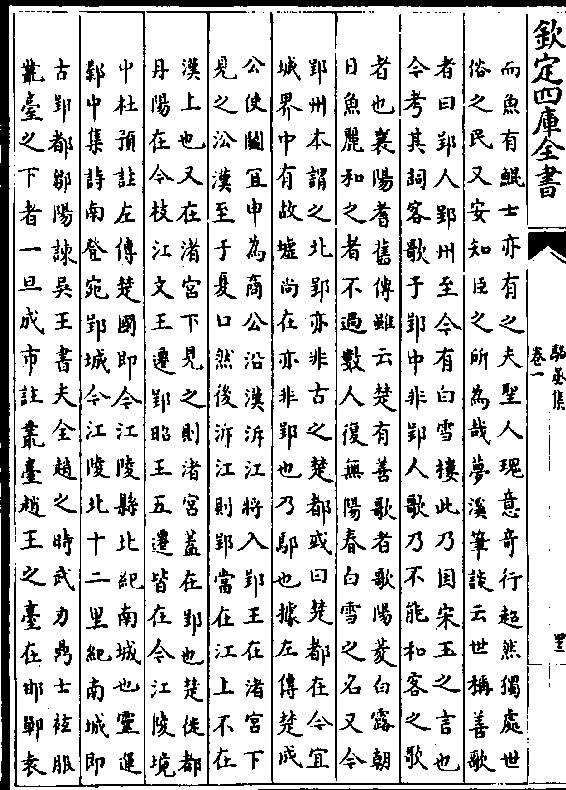 欽定四庫全書
駱丞集
卷一
而魚有鯤士亦有之夫聖人瑰意奇行超然獨處世
俗之民又安知臣之所為哉夢溪筆談云世稱善歌
者曰郢人郢州至今有白雪樓此乃因宋玉之言也
今考其詞客歌于郢中非郢人歌乃不能和客之歌
者也襄陽耆舊傳雖云楚有善歌者歌陽菱白露朝
日魚麗和之者不過數人復無陽春白雪之名又今
郢州本謂之北郢亦非古之楚都或曰楚都在今宜
城界中有故墟尚在亦非郢也乃鄢也據左傳楚成
公使鬬宜申為商公沿漢泝江將入郢王在渚宮下
見之沿漢至于夏口然後泝江則郢當在江上不在
漢上也又在渚宮下見之則渚宮蓋在郢也楚徙都
丹陽在今枝江文王遷郢昭王五遷皆在今江陵境
中杜預註左傳楚國即今江陵縣北紀南城也靈運
鄴中集詩南登宛郢城今江陵北十二里紀南城即
古郢都鄒陽諫吳王書夫全趙之時武力鼎士袨服
叢臺之下者一旦成市註叢臺趙王之臺在邯鄲袁